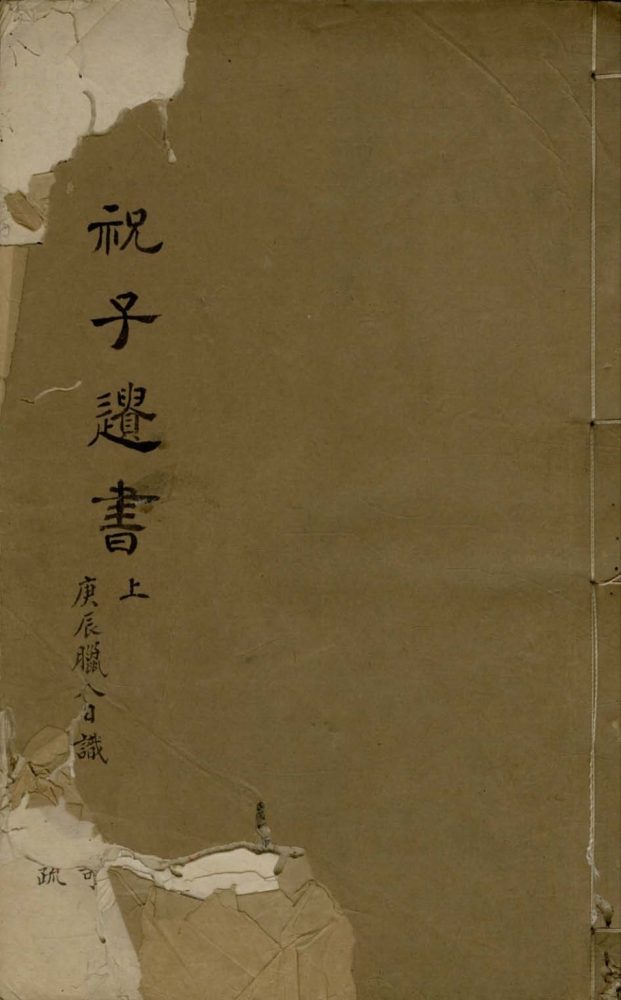 祝子遺書
上
庚辰臘八日識
疏